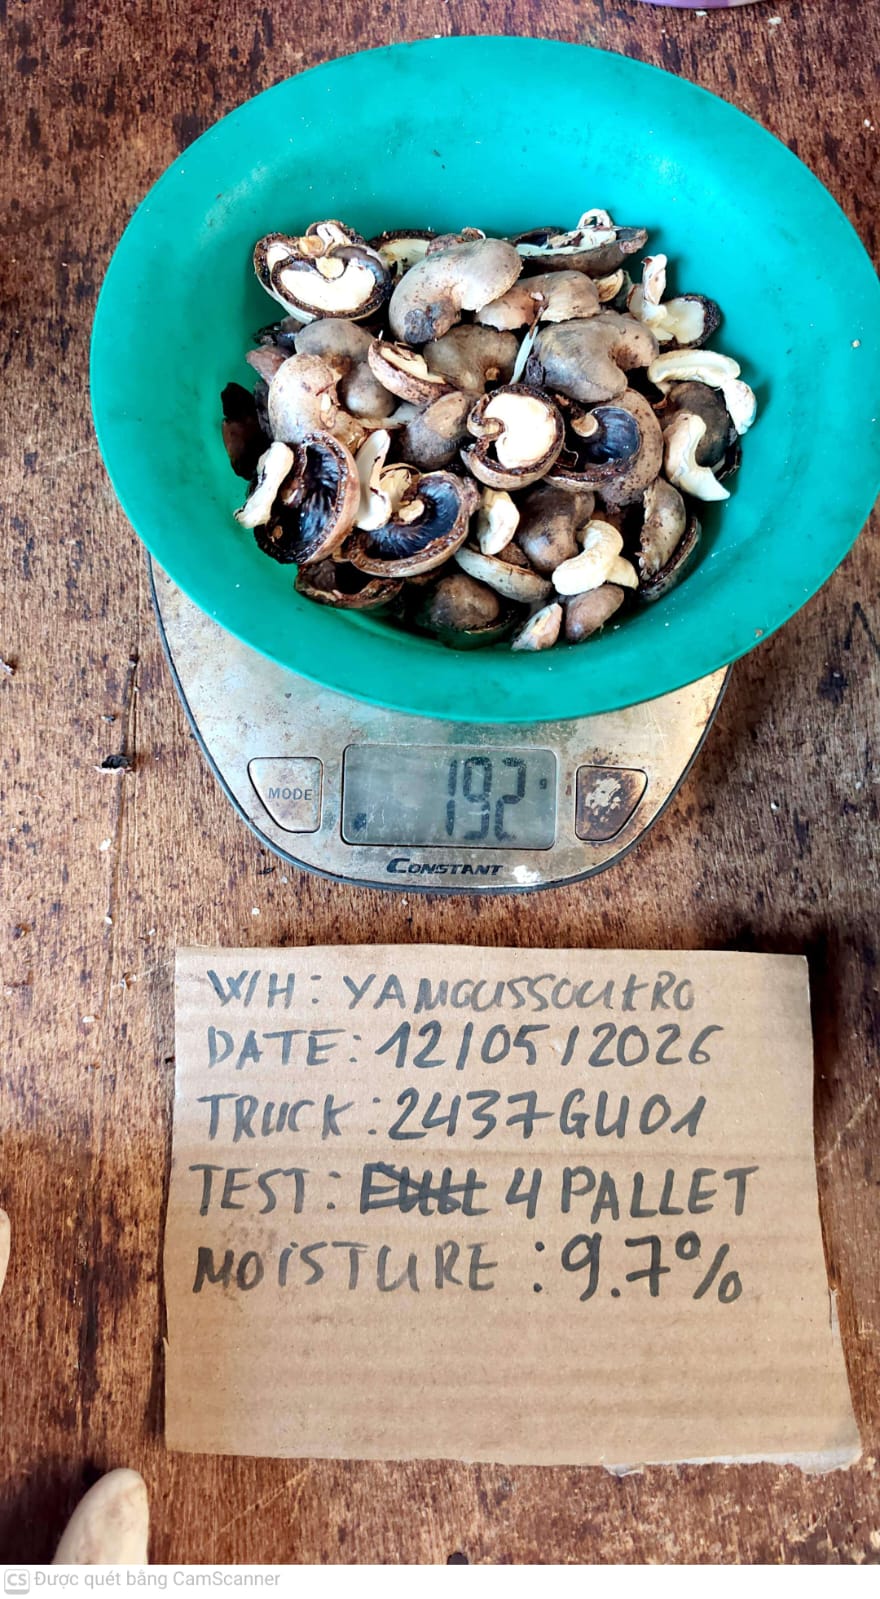 MODE
192 g
CONSTANT
W/H: YAMOUSSOUKRO
DATE: 12/05/2026
TRUCK: 2437GU01
TEST: 4 PALLET
MOISTURE: 9.7%
CS Được quét bằng CamScanner